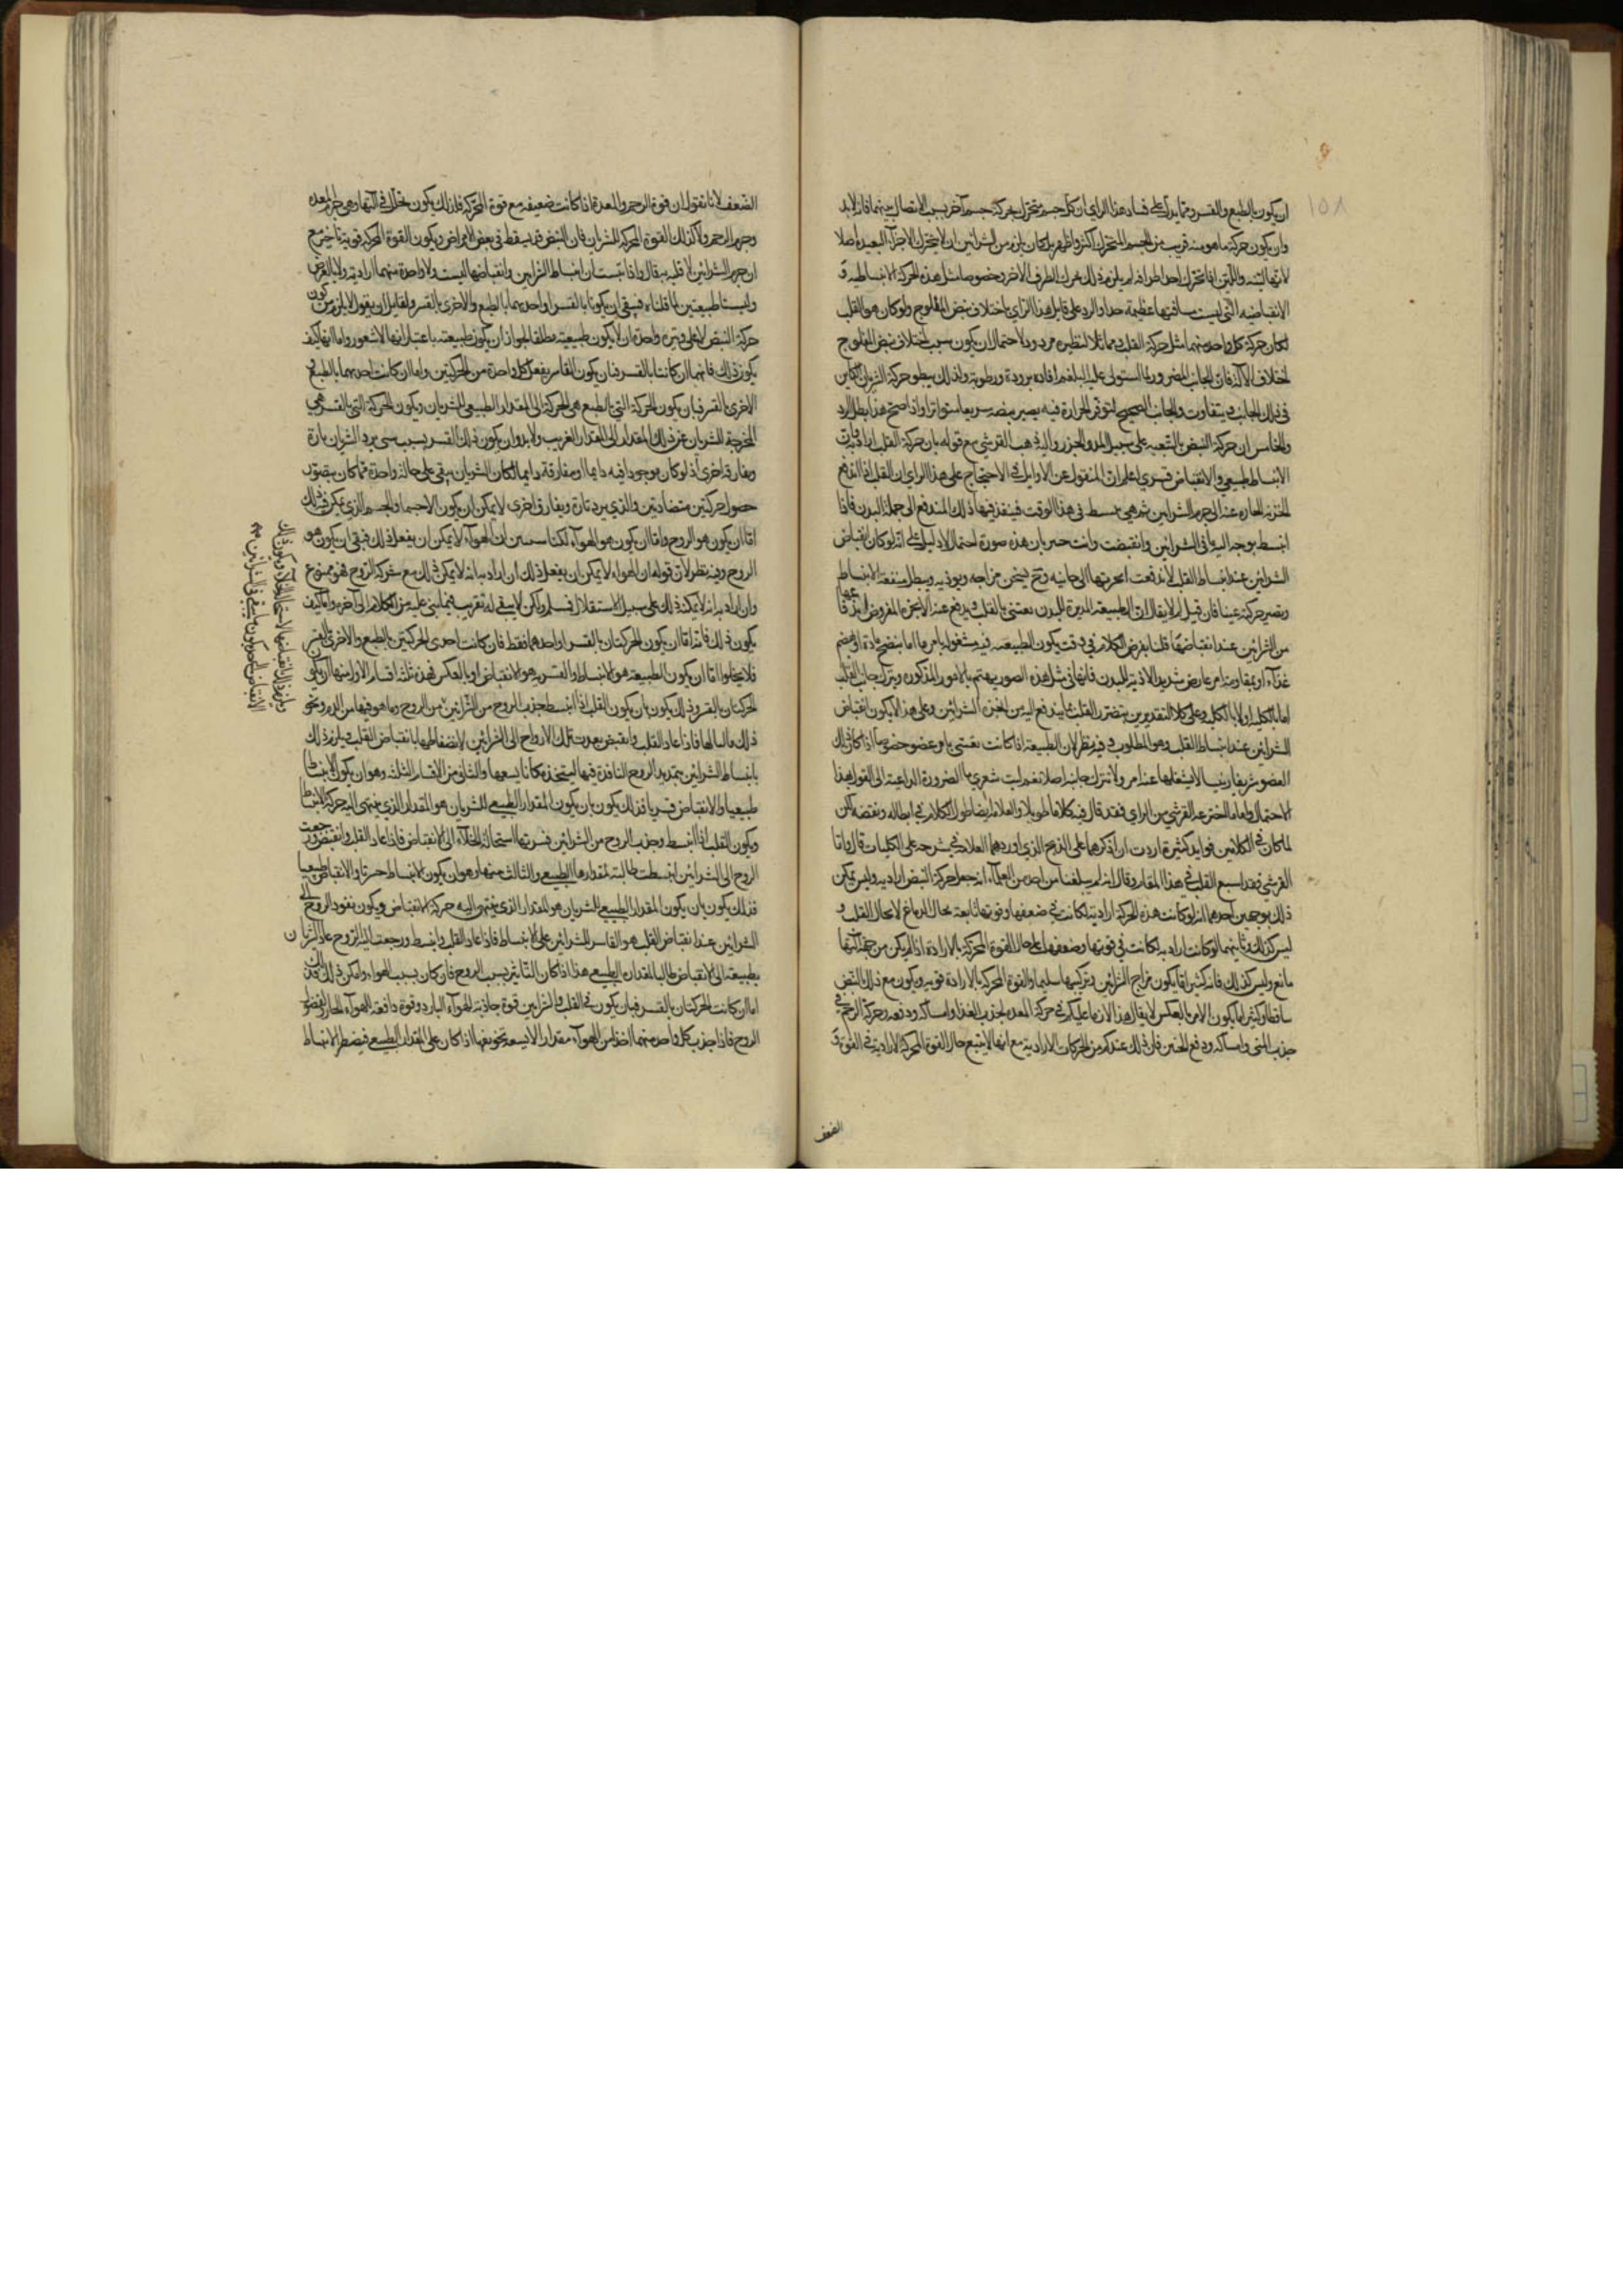 ١٥٨
ان يكون بالطبع والقسر ومما يدل على فساد هذا الراي ان كل جسم متحرك بحركة جسم آخر بسبب الاتصال بينهما فانه لابد
وان يكون حركة ما هو منه قريب من الجسم المتحرك اكثر واظهر
لانها لينة واللين اذا تحرك احد اطرافه لم يلزم ذلك تحرك الطرف الآخر وخصوصا مثل هذه الحركة الانبساطية و
الانقباضية التي ليست مسافتها عظيمة جدا والرد على قايل هذا الراي باختلاف نبض المفلوج ولو كان هو القلب
لكان حركة كل واحد منهما مثل حركة القلب مردود لاحتمال ان يكون سبب اختلاف نبض المفلوج
اختلاف الآلة فان الجانب المضرور لما استولى عليه البلغم افاده برودة ورطوبة ولذلك يبطو حركة الشريان الكاين
في ذلك الجانب ويتفاوت والجانب الصحيح لتوفر الحرارة فيه يصير نبضه سريعا متواترا واذا صح هذا بطل الرد
والخامس ان حركة النبض بالتبعية على سبيل المد والجزر واليه ذهب القرشي مع قوله بان حركة القلب ارادية
الانبساط طبيعي والانقباض قسري اعلم ان المنقول عن الاوايل في الاحتجاج على هذا الراي ان القلب اذا اندفع
عنه الى جرم الشرايين في هذا الوقت فينفذ فيها ذلك المندفع الى جملة البدن فاذا
انبسط توجه اليه ما في الشرايين وانقبضت وانت خبير بان هذه صورة احتمال لا دليل على انه لو كان انقباض
الشرايين عند انبساط القلب لاندفعت ابخرتها الى جانبه وح يسخن مزاجه ويوذيه ويبطل منفعة الانبساط
ويصير حركته عبثا فان قيل لم لا يقال ان الطبيعة المدبرة للبدن تعتني بالقلب ويدفع عنه الابخرة المفروض
من الشرايين عند انقباضها قلنا بفرض الكلام في وقت يكون الطبيعة فيه مشغولة بامر ما اما بنضج مادة او هضم
غذاء او بمقاومة امر عارض شديد الاذية للبدن فانها في مثل هذه الصور يهتم بالامور المذكورة ويترك جانب القلب
اما بالكلية او لا بالكلية وعلى كلا التقديرين يتضرر القلب بما يندفع اليه من ابخرة الشرايين وعلى هذا لا يكون انقباض
الشرايين عند انبساط القلب وهو المطلوب وفيه نظر لان الطبيعة اذا كانت تعتني باي عضو خصوصا اذا كان ذلك
العضو شريفا رئيسا لا يشغلها عنه امر ولا تترك جانبه اصلا نعم ليت شعري ما الضرورة الداعية الى القول بهذا
الاحتمال واما ما اخترعه القرشي من الراي فقد قال فيه كلاما طويلا والعلامة ايضا طول الكلام في ابطاله ونقضه لكن
لما كان في الكلامين فوايد كثيرة اردت ان اذكرهما على النهج الذي اوردهما العلامة في شرحه على الكليات قال واما
القرشي فقد اسبع القلب في هذا المقام وقال انه لم يبلغنا عن احد من العلماء انه جعل حركة النبض ارادية وليس يمكن
ذلك بوجهين احدهما انه لو كانت هذه الحركة ارادية لكانت في ضعفها وقوتها تابعة بحال الدماغ لا بحال القلب و
ليس كذلك وثانيهما لو كانت ارادية لكانت في قوتها وضعفها على حال القوة المحركة بالارادة اذا لم يكن من جهة آلتها
مانع وليس كذلك فانه كثيرا ما يكون مزاج الشرايين وتركيبها سليما والقوة المحركة بالارادة قوية ويكون مع ذلك النبض
ساقطا وكثيرا ما يكون الامر بالعكس لا يقال هذا لازم عليكم في حركة المعدة لجذب الغذا وامساكه ودفعه وحركة الرحم في
جذب المني وامساكه ودفع الجنين فان ذلك عندكم من الحركات الارادية مع انها لا يتبع حال القوة المحركة الارادية في القوة و
الضعف
الضعف لانا نقول ان قوة الرحم والمعدة اذا كانت ضعيفة مع قوة المحركة فان ذلك يكون لخلل في آلتها وهي جرم المعدة
وجرم الرحم ولا كذلك القوة المحركة للشريان فان النبض قد يسقط في بعض الامراض ويكون القوة المحركة قوية
ان جرم الشرايين قال واذا ثبت ان انبساط الشرايين وانقباضها ليست ولا واحدة منهما ارادية ولا بالعرض
وليستا طبيعتين لما قلناه فبقي ان يكونا بالقسر او احديهما بالطبع والاخرى بالقسر ولقايل ان يقول لا يلزم من كون
حركة النبض لا على وتيرة واحدة ان لا يكون طبيعية مطلقا لجواز ان يكون طبيعية باعتبار انها لا شعور واما انها كيف
يكون ذلك فانهما ان كانتا بالقسر فبان يكون القاسر يفعل كل واحدة من الحركتين واما ان كانت احديهما بالطبع و
الاخرى بالقسر فبان يكون الحركة التي بالطبع هي الحركة الى المقدار الطبيعي للشريان ويكون الحركة التي بالقسر هي
المخرجة للشريان عن ذلك المقدار الى المقدار الغريب ولابد وان يكون ذلك القسر بسبب شي يرد الشريان تارة
ويفارقه اخرى اذ لو كان موجودا فيه دايما او مفارقه دايما لكان الشريان يبقى على حالة واحدة فما كان يتصور
حصول حركتين متضادتين والذي يرد تارة ويفارق اخرى لا يمكن ان يكون الا جسما والجسم الذي يمكن فيه ذلك
اما ان يكون هو الروح واما ان يكون هو الهواء لكنا سنبين ان الهواء لا يمكن ان يفعل ذلك فبقي ان يكون هو
الروح وفيه نظر لان قوله ان الهواء لا يمكن ان يفعل ذلك ان اراد به انه لا يمكن ذلك مع شركة الروح فهو ممنوع
وان اراد به انه لا يمكنه ذلك على سبيل الاستقلال فمسلم ولكن لا يبقى له تقريب فيما يبتني عليه من الكلام الى آخره واما كيف
يكون ذلك فانه اما ان يكون الحركتان بالقسر او احدهما فقط فان كانت احدى الحركتين بالطبع والاخرى بالقسر
فلا يخلو اما ان يكون الطبيعية هو الانبساط والقسرية هو الانقباض او بالعكس فهذه ثلثة اقسام الاول منها ان يكون
الحركتان بالقسر وذلك يكون بان يكون القلب اذا انبسط جذب الروح من الشرايين من الروح وما هو فيها من الدم ونحو
ذلك فاذا عاد القلب وانقبض بعدت تلك الارواح الى الشرايين لانضغاطها بانقباض القلب ويلزم ذلك
بانبساط الشرايين بتمديد الروح النافذة فيها ليتخذ مكانا يسعها والثاني من الاقسام الثلثة وهو ان يكون الانبساط
طبيعيا والانقباض قسريا فذلك يكون بان يكون المقدار الطبيعي للشريان هو المقدار الذي ينتهي اليه حركة الانبساط
ويكون القلب اذا انبسط وجذب الروح من الشرايين قسرتها استحالة الخلاء الى الانقباض فاذا عاد القلب وانقبض ورجعت
الروح الى الشرايين انبسطت طالبة لمقدارها الطبيعي والثالث منها وهو ان يكون الانبساط قسريا والانقباض طبيعيا
فذلك يكون بان يكون المقدار الطبيعي للشريان هو المقدار الذي ينتهي اليه حركة الانقباض ويكون نفوذ الروح الى
الشرايين عند انقباض القلب هو القاسر للشرايين على الانبساط فاذا عاد القلب وانبسط ورجعت اليه الروح عاد الشريان
بطبيعته الى الانقباض طالبا لمقداره الطبيعي هذا اذا كان التاثير بسبب الروح فان كان بسبب الهواء وامكن ذلك فذلك
اما ان كانت الحركتان بالقسر فبان يكون في القلب والشرايين قوة جاذبة للهواء البارد وقوة دافعة للهواء الحار
الروح فاذا جذب كل واحد منهما اخذ من الهواء مقدارا لا يسعه تجويفها اذا كان على المقدار الطبيعي فيضطر الانبساط